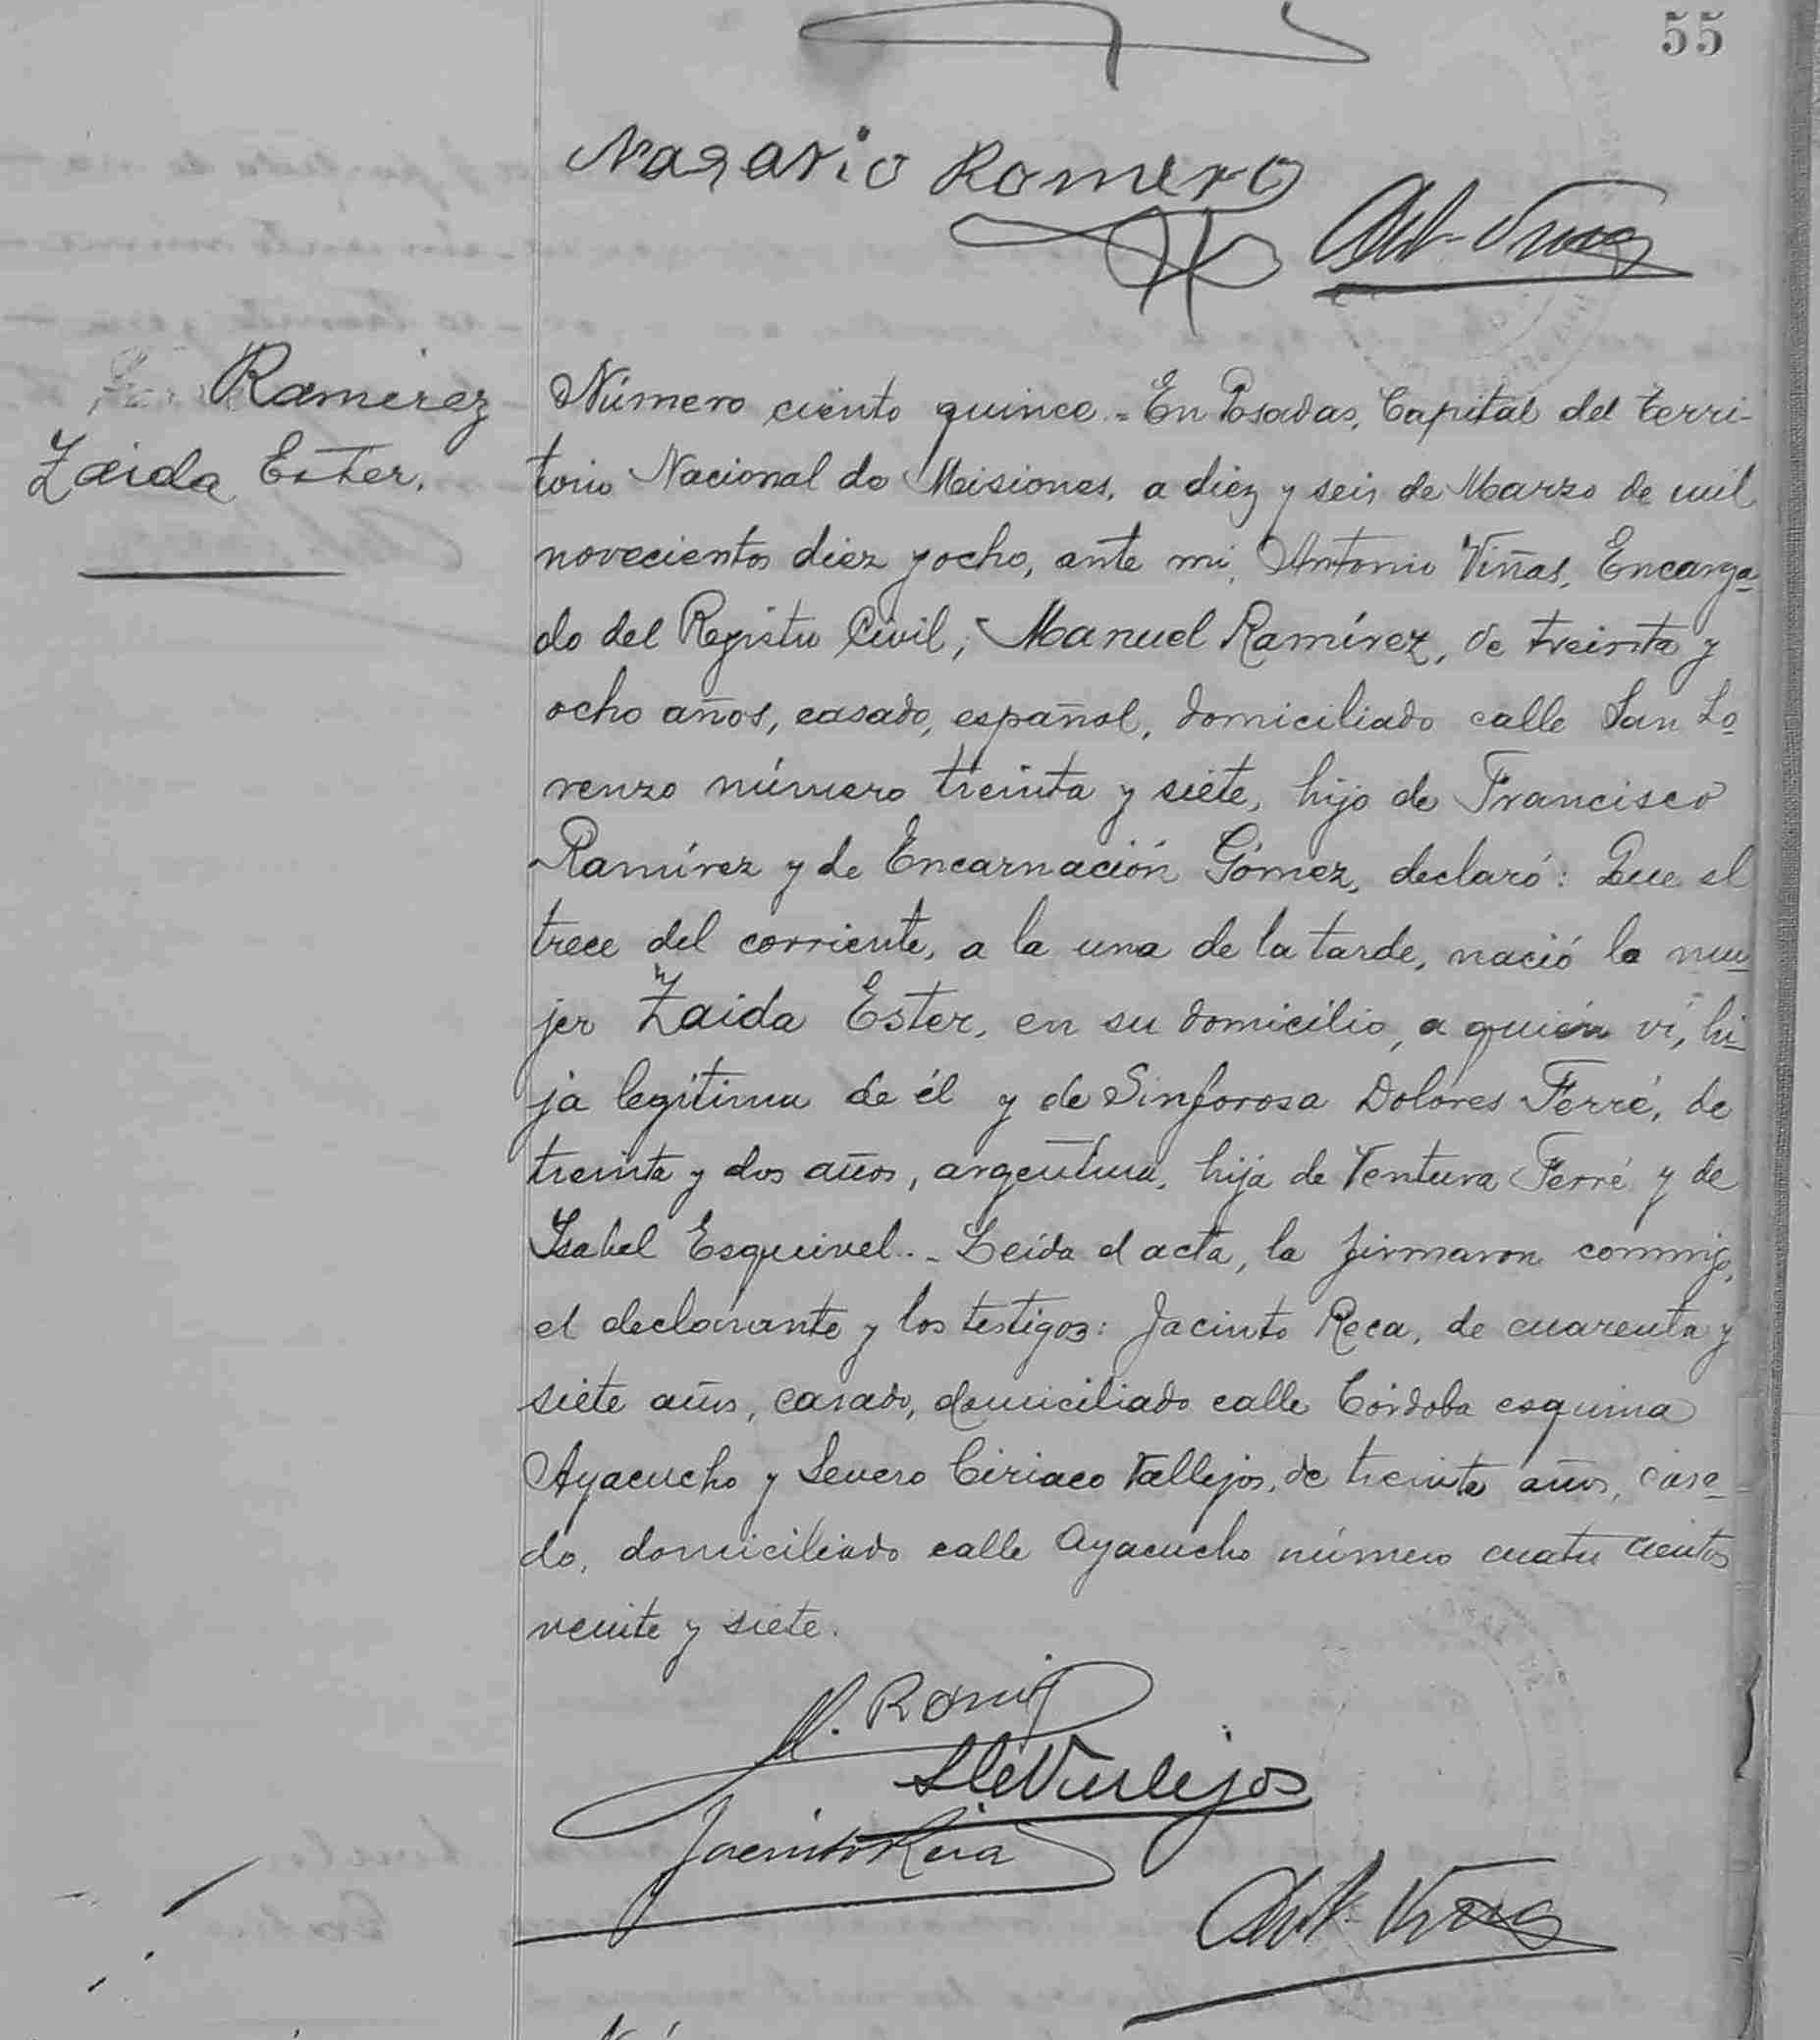 55
Nasario Romero
Ant. Viñas
Ramirez
Zaida Ester.
Número ciento quince.= En Posadas, Capital del terri-
torio Nacional de Misiones, a diez y seis de Marzo de mil
novecientos diez y ocho, ante mi, Antonio Viñas, Encarga-
do del Registro Civil, Manuel Ramírez, de treinta y
ocho años, casado, español, domiciliado calle San Lo-
renzo número treinta y siete, hijo de Francisco
Ramírez y de Encarnación Gómez, declaró: Que el
trece del corriente, a la una de la tarde, nació la mu-
jer Zaida Ester, en su domicilio, a quién ví, hi-
ja legítima de él y de Sinforosa Dolores Ferré, de
treinta y dos años, argentina, hija de Ventura Ferré y de
Isabel Esquivel.- Leída el acta, la firmaron conmigo,
el declarante y los testigos: Jacinto Reca, de cuarenta y
siete años, casado, domiciliado calle Córdoba esquina
Ayacucho y Severo Ciriaco Vallejos, de treinta años, casa-
do, domiciliado calle Ayacucho número cuatro cientos
veinte y siete.
M. Ramz
Vallejos
Jacinto Reca
Ant. Viñas